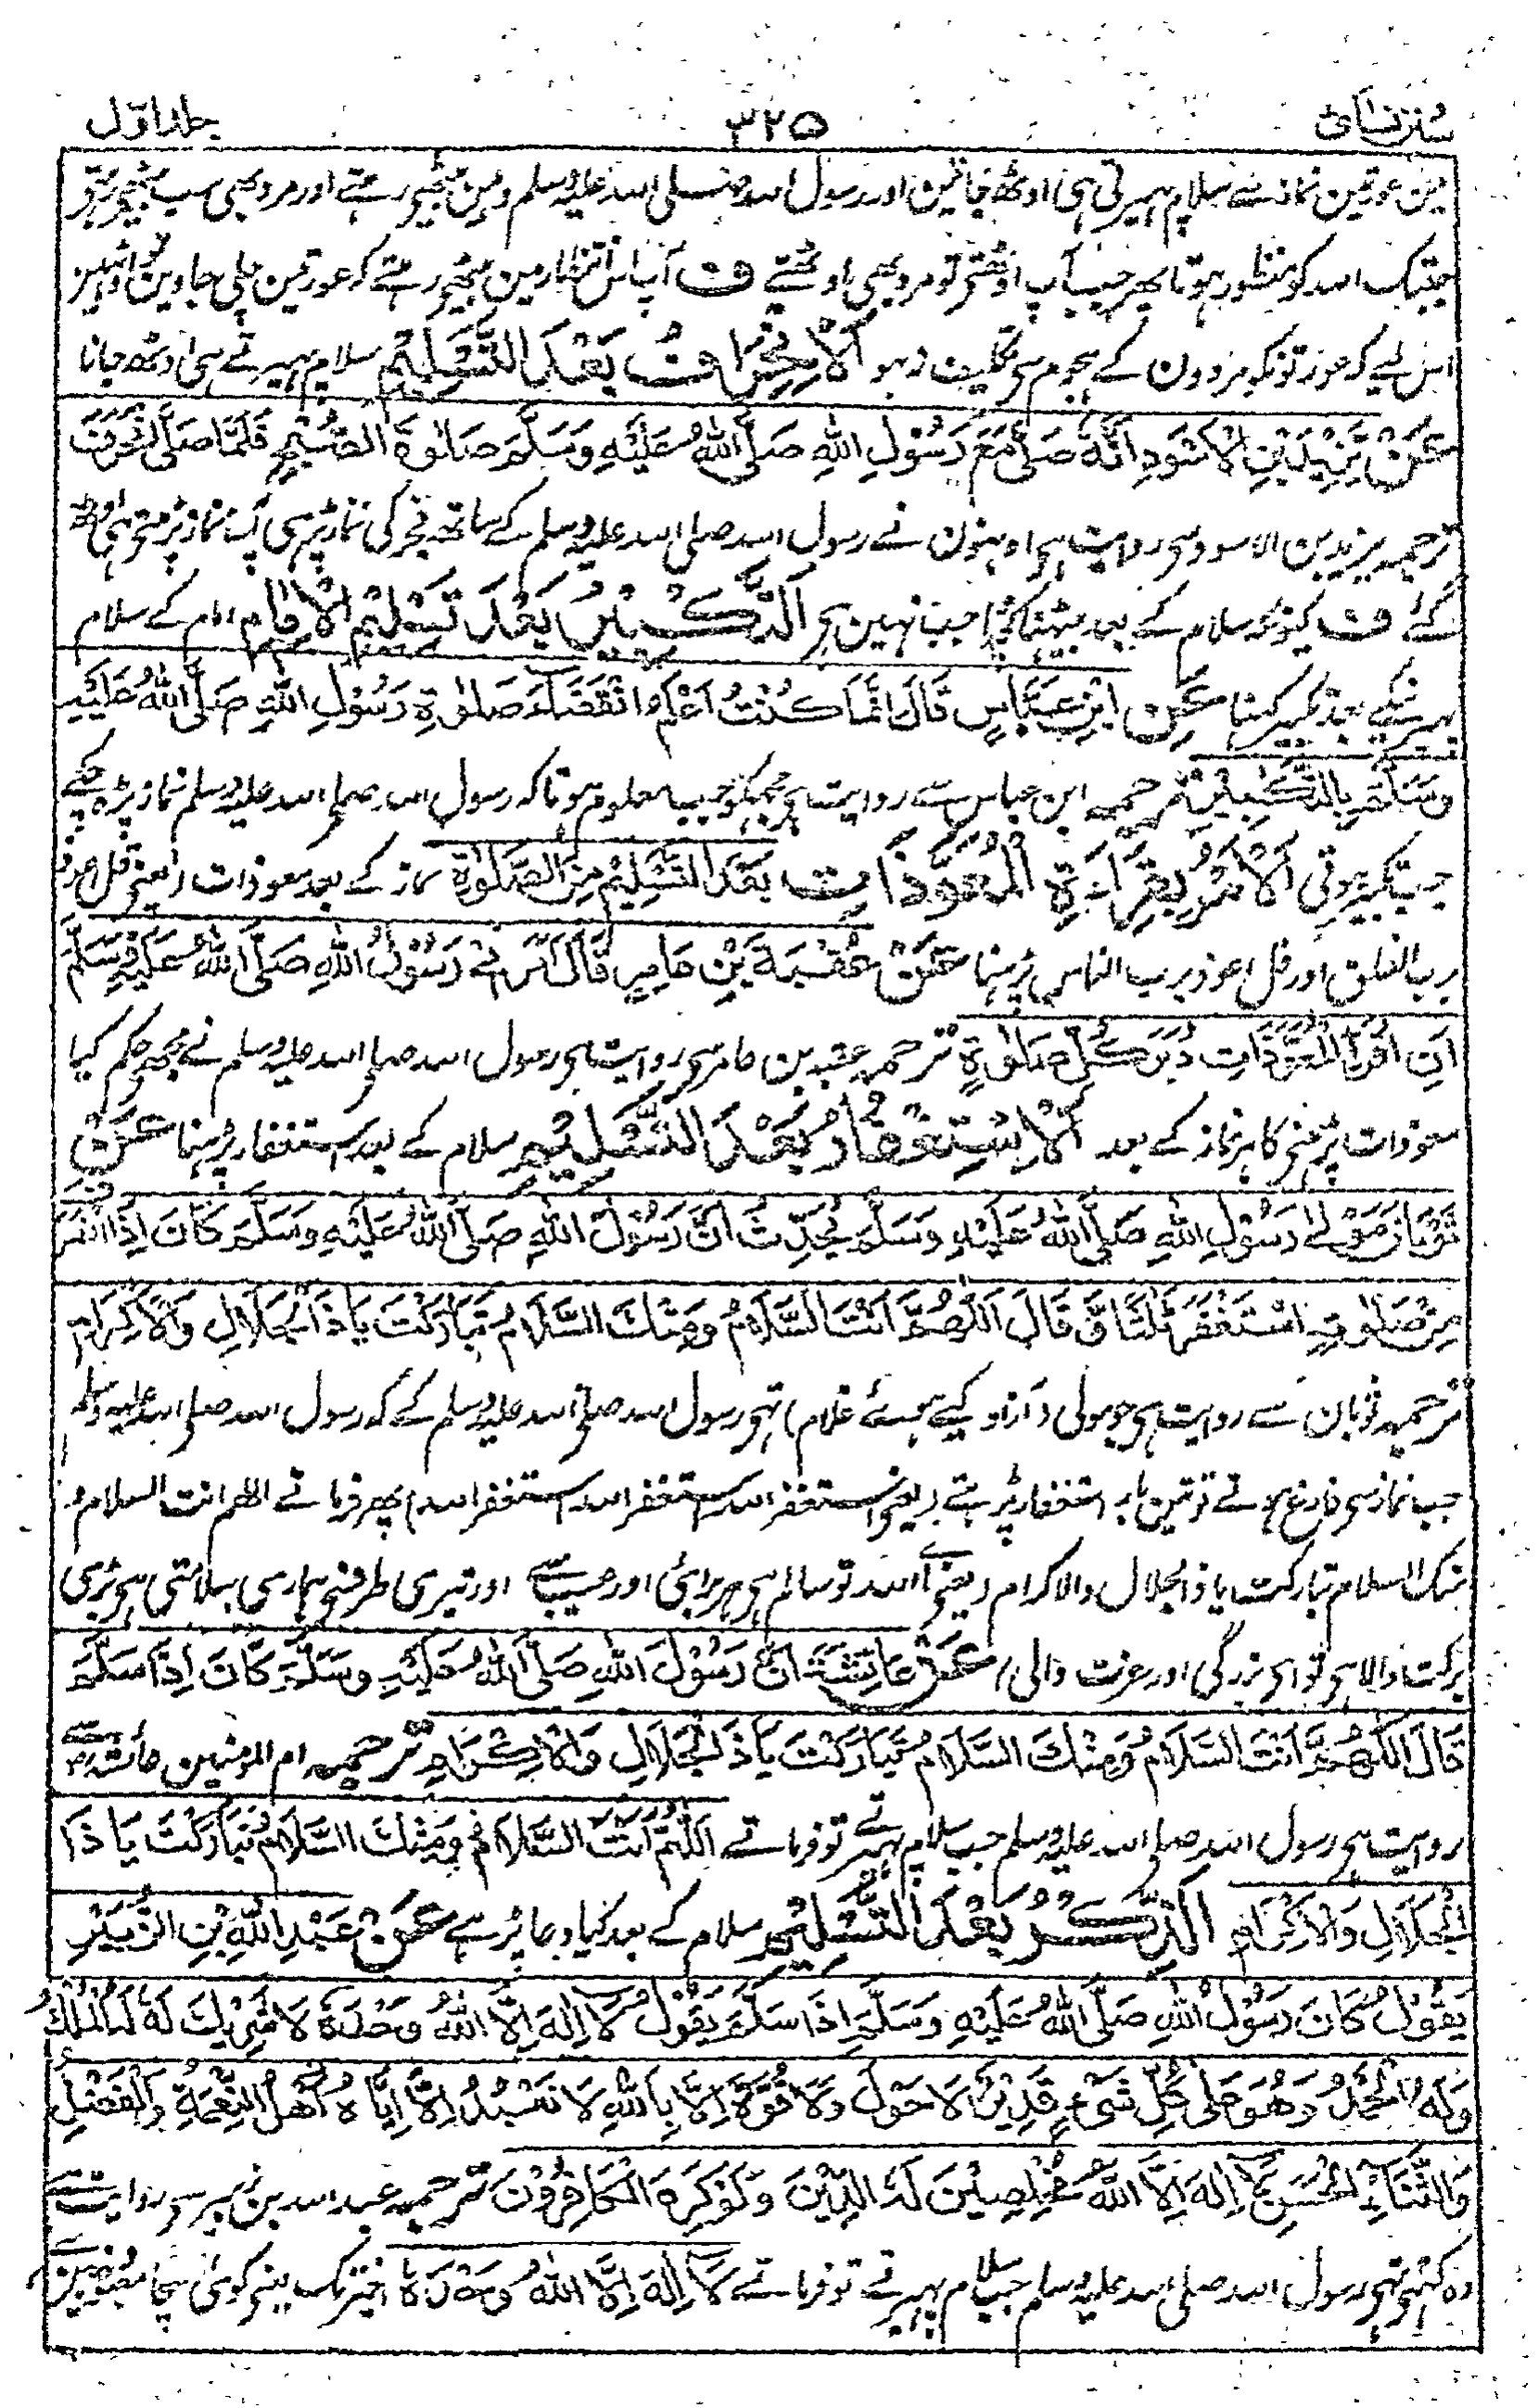 سنن نسائی ۳۲۵ جلد اوّل
مین عورتین نماز سے سلام پہیرتی ہی اوٹھ جاتین اور رسول اللہ صلی اللہ علیہ وسلم وہین بیٹھے رہتے اور مرد بھی سب بیٹھے رہتے
جبتک اللہ کو منظور ہوتا پھر جب آپ اوٹھتے تو مرد بھی اوٹھتے ف آپ اس انتظار مین بیٹھے رہتے کہ عورتین چلی جاوین
اس لیے کہ عورتونکو مردون کے ہجوم سے تکلیف نہو اَلْاِنْحِرَافُ بَعْدَ التَّسْلِيْمِ سلام پہیرتے ہی اوٹھ جانا
عَنْ يَزِيْدَ بْنِ الْاَسْوَدِ اَنَّهٗ صَلّٰى مَعَ رَسُوْلِ اللهِ صَلَّى اللهُ عَلَيْهِ وَسَلَّمَ صَلٰوةَ الصُّبْحِ فَلَمَّا صَلّٰى انْحَرَفَ
ترجمہ یزید بن الاسود سے روایت ہے اوہنون نے رسول اللہ صلی اللہ علیہ وسلم کے ساتھ فجر کی نماز پڑہی آپ نماز پڑہتے ہی اوٹھ
گئے ف کیونکہ سلام کے بعد بیٹھنا کچھ واجب نہین ہے اَلتَّكْبِيْرُ بَعْدَ تَسْلِيْمِ الْاِمَامِ امام کے سلام
پہیرنیکے بعد تکبیر کہنا عَنِ ابْنِ عَبَّاسٍ قَالَ اِنَّمَا كُنْتُ اَعْلَمُ انْقِضَاءَ صَلٰوةِ رَسُوْلِ اللهِ صَلَّى اللهُ عَلَيْهِ
وَسَلَّمَ بِالتَّكْبِيْرِ ترجمہ ابن عباس سے روایت ہے مجھکو جب معلوم ہوتا کہ رسول اللہ صلی اللہ علیہ وسلم نماز پڑہ چکے
جب تکبیر ہوتی اَلْاَمْرُ بِقِرَاءَةِ الْمُعَوِّذَاتِ بَعْدَ التَّسْلِيْمِ مِنَ الصَّلٰوةِ نماز کے بعد معوذات (یعنی قل اعوذ
برب الفلق اور قل اعوذ برب الناس) پڑہنا عَنْ عُقْبَةَ بْنِ عَامِرٍ قَالَ اَمَرَنِيْ رَسُوْلُ اللهِ صَلَّى اللهُ عَلَيْهِ وَسَلَّمَ
اَنْ اَقْرَأَ الْمُعَوِّذَاتِ دُبُرَ كُلِّ صَلٰوةٍ ترجمہ عقبہ بن عامر سے روایت ہے رسول اللہ صلی اللہ علیہ وسلم نے مجھے حکم کیا
معوذات پڑہنے کا ہر نماز کے بعد اَلْاِسْتِغْفَارُ بَعْدَ التَّسْلِيْمِ سلام کے بعد استغفار پڑہنا عَنْ
ثَوْبَانَ مَوْلٰى رَسُوْلِ اللهِ صَلَّى اللهُ عَلَيْهِ وَسَلَّمَ يُحَدِّثُ اَنَّ رَسُوْلَ اللهِ صَلَّى اللهُ عَلَيْهِ وَسَلَّمَ كَانَ اِذَا انْصَرَفَ
مِنْ صَلٰوتِهٖ اسْتَغْفَرَ ثَلٰثًا وَّقَالَ اَللّٰهُمَّ اَنْتَ السَّلَامُ وَمِنْكَ السَّلَامُ تَبَارَكْتَ يَا ذَا الْجَلَالِ وَالْاِكْرَامِ
ترجمہ ثوبان سے روایت ہے جو مولی (آزاد کیے ہوئے غلام) تہے رسول اللہ صلی اللہ علیہ وسلم کے کہ رسول اللہ صلی اللہ علیہ وسلم
جب نماز سے فارغ ہوتے تو تین بار استغفار پڑہتے (یعنی استغفر اللہ استغفر اللہ استغفر اللہ) پھر فرماتے اللہم انت السلام و
منک السلام تبارکت یا ذا الجلال والاکرام (یعنی اے اللہ تو سالم ہے ہر برائی اور عیب سے اور تیری طرف سے ہماری سلامتی ہے بڑی
برکت والا ہے تو اے بزرگی اور عزت والے) عَنْ عَائِشَةَ اَنَّ رَسُوْلَ اللهِ صَلَّى اللهُ عَلَيْهِ وَسَلَّمَ كَانَ اِذَا سَلَّمَ
قَالَ اللّٰهُمَّ اَنْتَ السَّلَامُ وَمِنْكَ السَّلَامُ تَبَارَكْتَ يَا ذَا الْجَلَالِ وَالْاِكْرَامِ ترجمہ ام المومنین عائشہ سے
روایت ہے رسول اللہ صلی اللہ علیہ وسلم جب سلام پہیرتے تو فرماتے اَللّٰهُمَّ اَنْتَ السَّلَامُ وَمِنْكَ السَّلَامُ تَبَارَكْتَ يَا ذَا
الْجَلَالِ وَالْاِكْرَامِ اَلذِّكْرُ بَعْدَ التَّسْلِيْمِ سلام کے بعد کیا دعا پڑہے عَنْ عَبْدِ اللهِ بْنِ الزُّبَيْرِ
يَقُوْلُ كَانَ رَسُوْلُ اللهِ صَلَّى اللهُ عَلَيْهِ وَسَلَّمَ اِذَا سَلَّمَ يَقُوْلُ لَا اِلٰهَ اِلَّا اللهُ وَحْدَهٗ لَا شَرِيْكَ لَهٗ لَهُ الْمُلْكُ
وَلَهُ الْحَمْدُ وَهُوَ عَلٰى كُلِّ شَيْءٍ قَدِيْرٌ لَا حَوْلَ وَلَا قُوَّةَ اِلَّا بِاللهِ لَا نَعْبُدُ اِلَّا اِيَّاهُ اَهْلَ النِّعْمَةِ وَالْفَضْلِ
وَالثَّنَاءِ الْحَسَنِ لَا اِلٰهَ اِلَّا اللهُ مُخْلِصِيْنَ لَهُ الدِّيْنَ وَلَوْ كَرِهَ الْكَافِرُوْنَ ترجمہ عبد اللہ بن زبیر سے روایت ہے
وہ کہتے تہے رسول اللہ صلی اللہ علیہ وسلم جب سلام پہیرتے تو فرماتے لَا اِلٰهَ اِلَّا اللهُ وَحْدَهٗ اخیر تک یعنی کوئی سچا معبود نہین